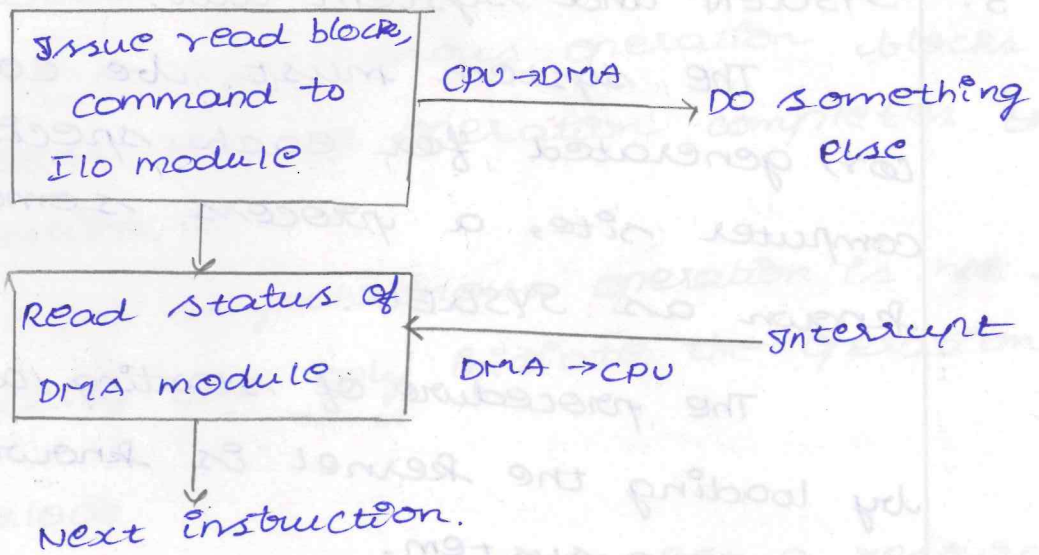 Issue read block,
command to
I/O module
CPU → DMA
DO something
else
Read status of
DMA module
Interrupt
DMA → CPU
Next instruction.